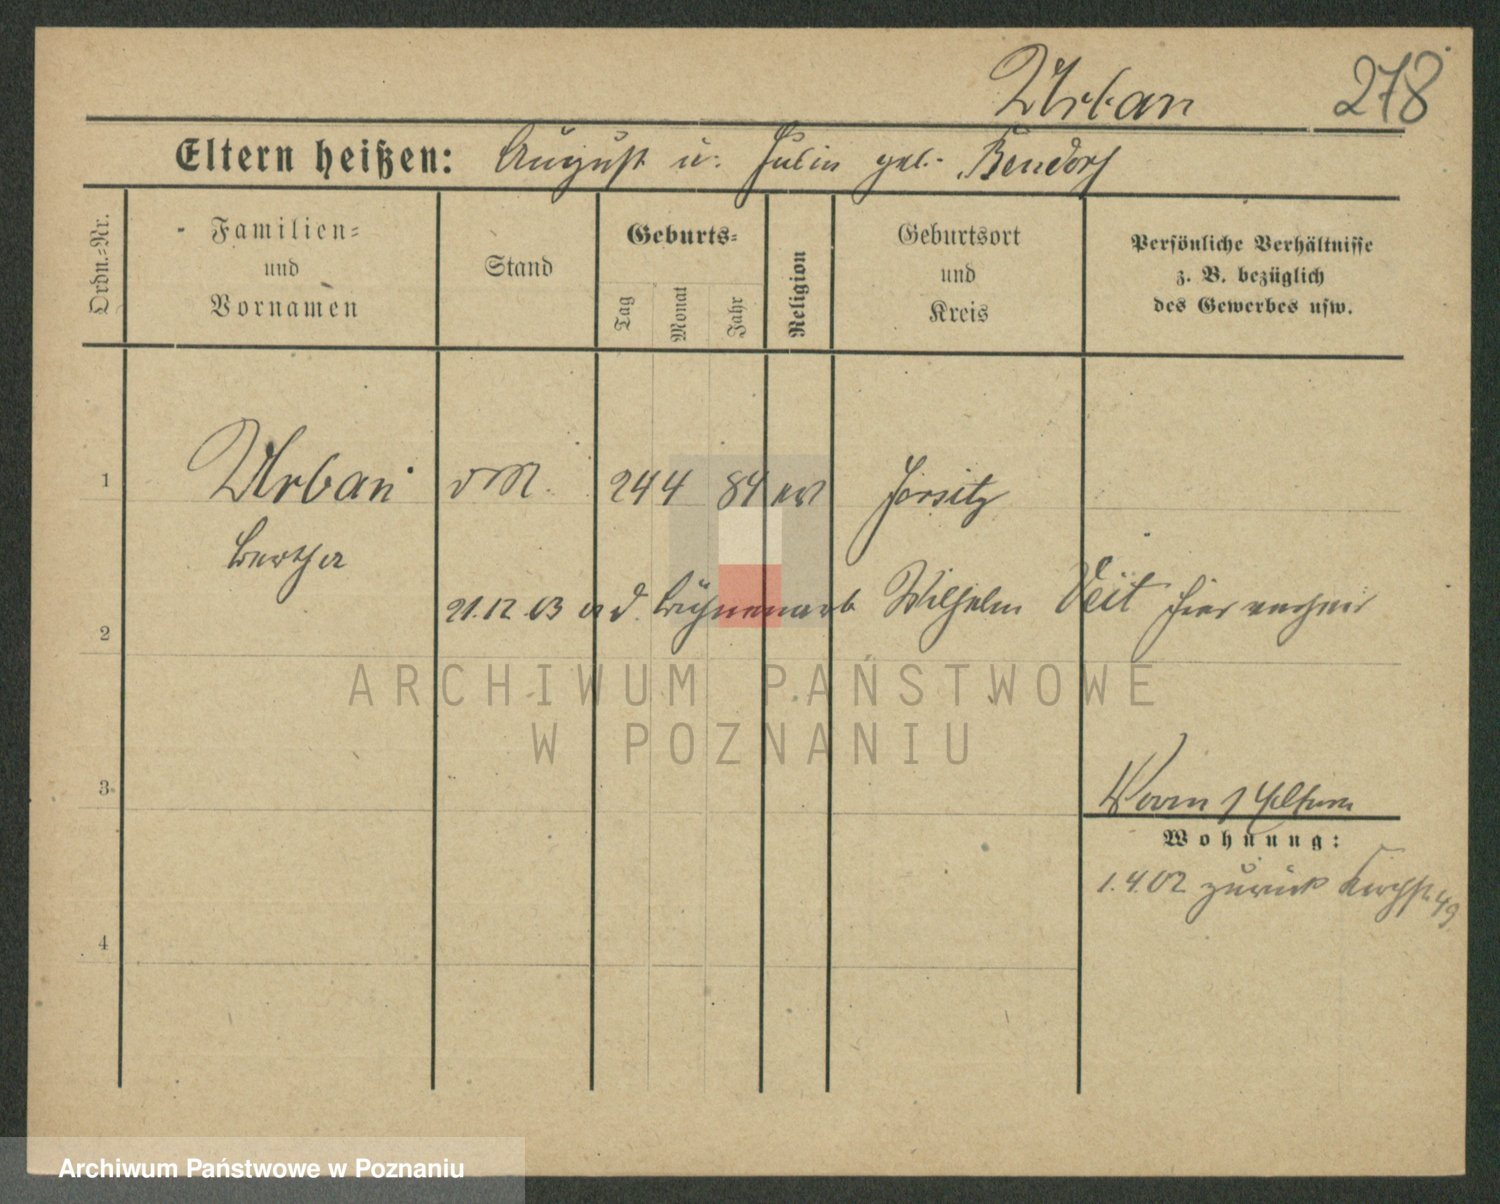 Urban 278
Eltern heißen: August u. Julie geb. Bendorf
Ordn.=Nr.
Familien=
und
Vornamen
Stand
Geburts=
Tag
Monat
Jahr
Religion
Geburtsort
und
Kreis
Persönliche Verhältnisse
z. B. bezüglich
des Gewerbes usw.
1 Urban 24 4 84 ev Jersitz
Bertha
21.12.03 a d. Wilhelm Veit hier
2
ARCHIWUM PAŃSTWOWE
W POZNANIU
3
Eltern
Wohnung:
1.4.02 zurück Kirchstr 49
4
Archiwum Państwowe w Poznaniu